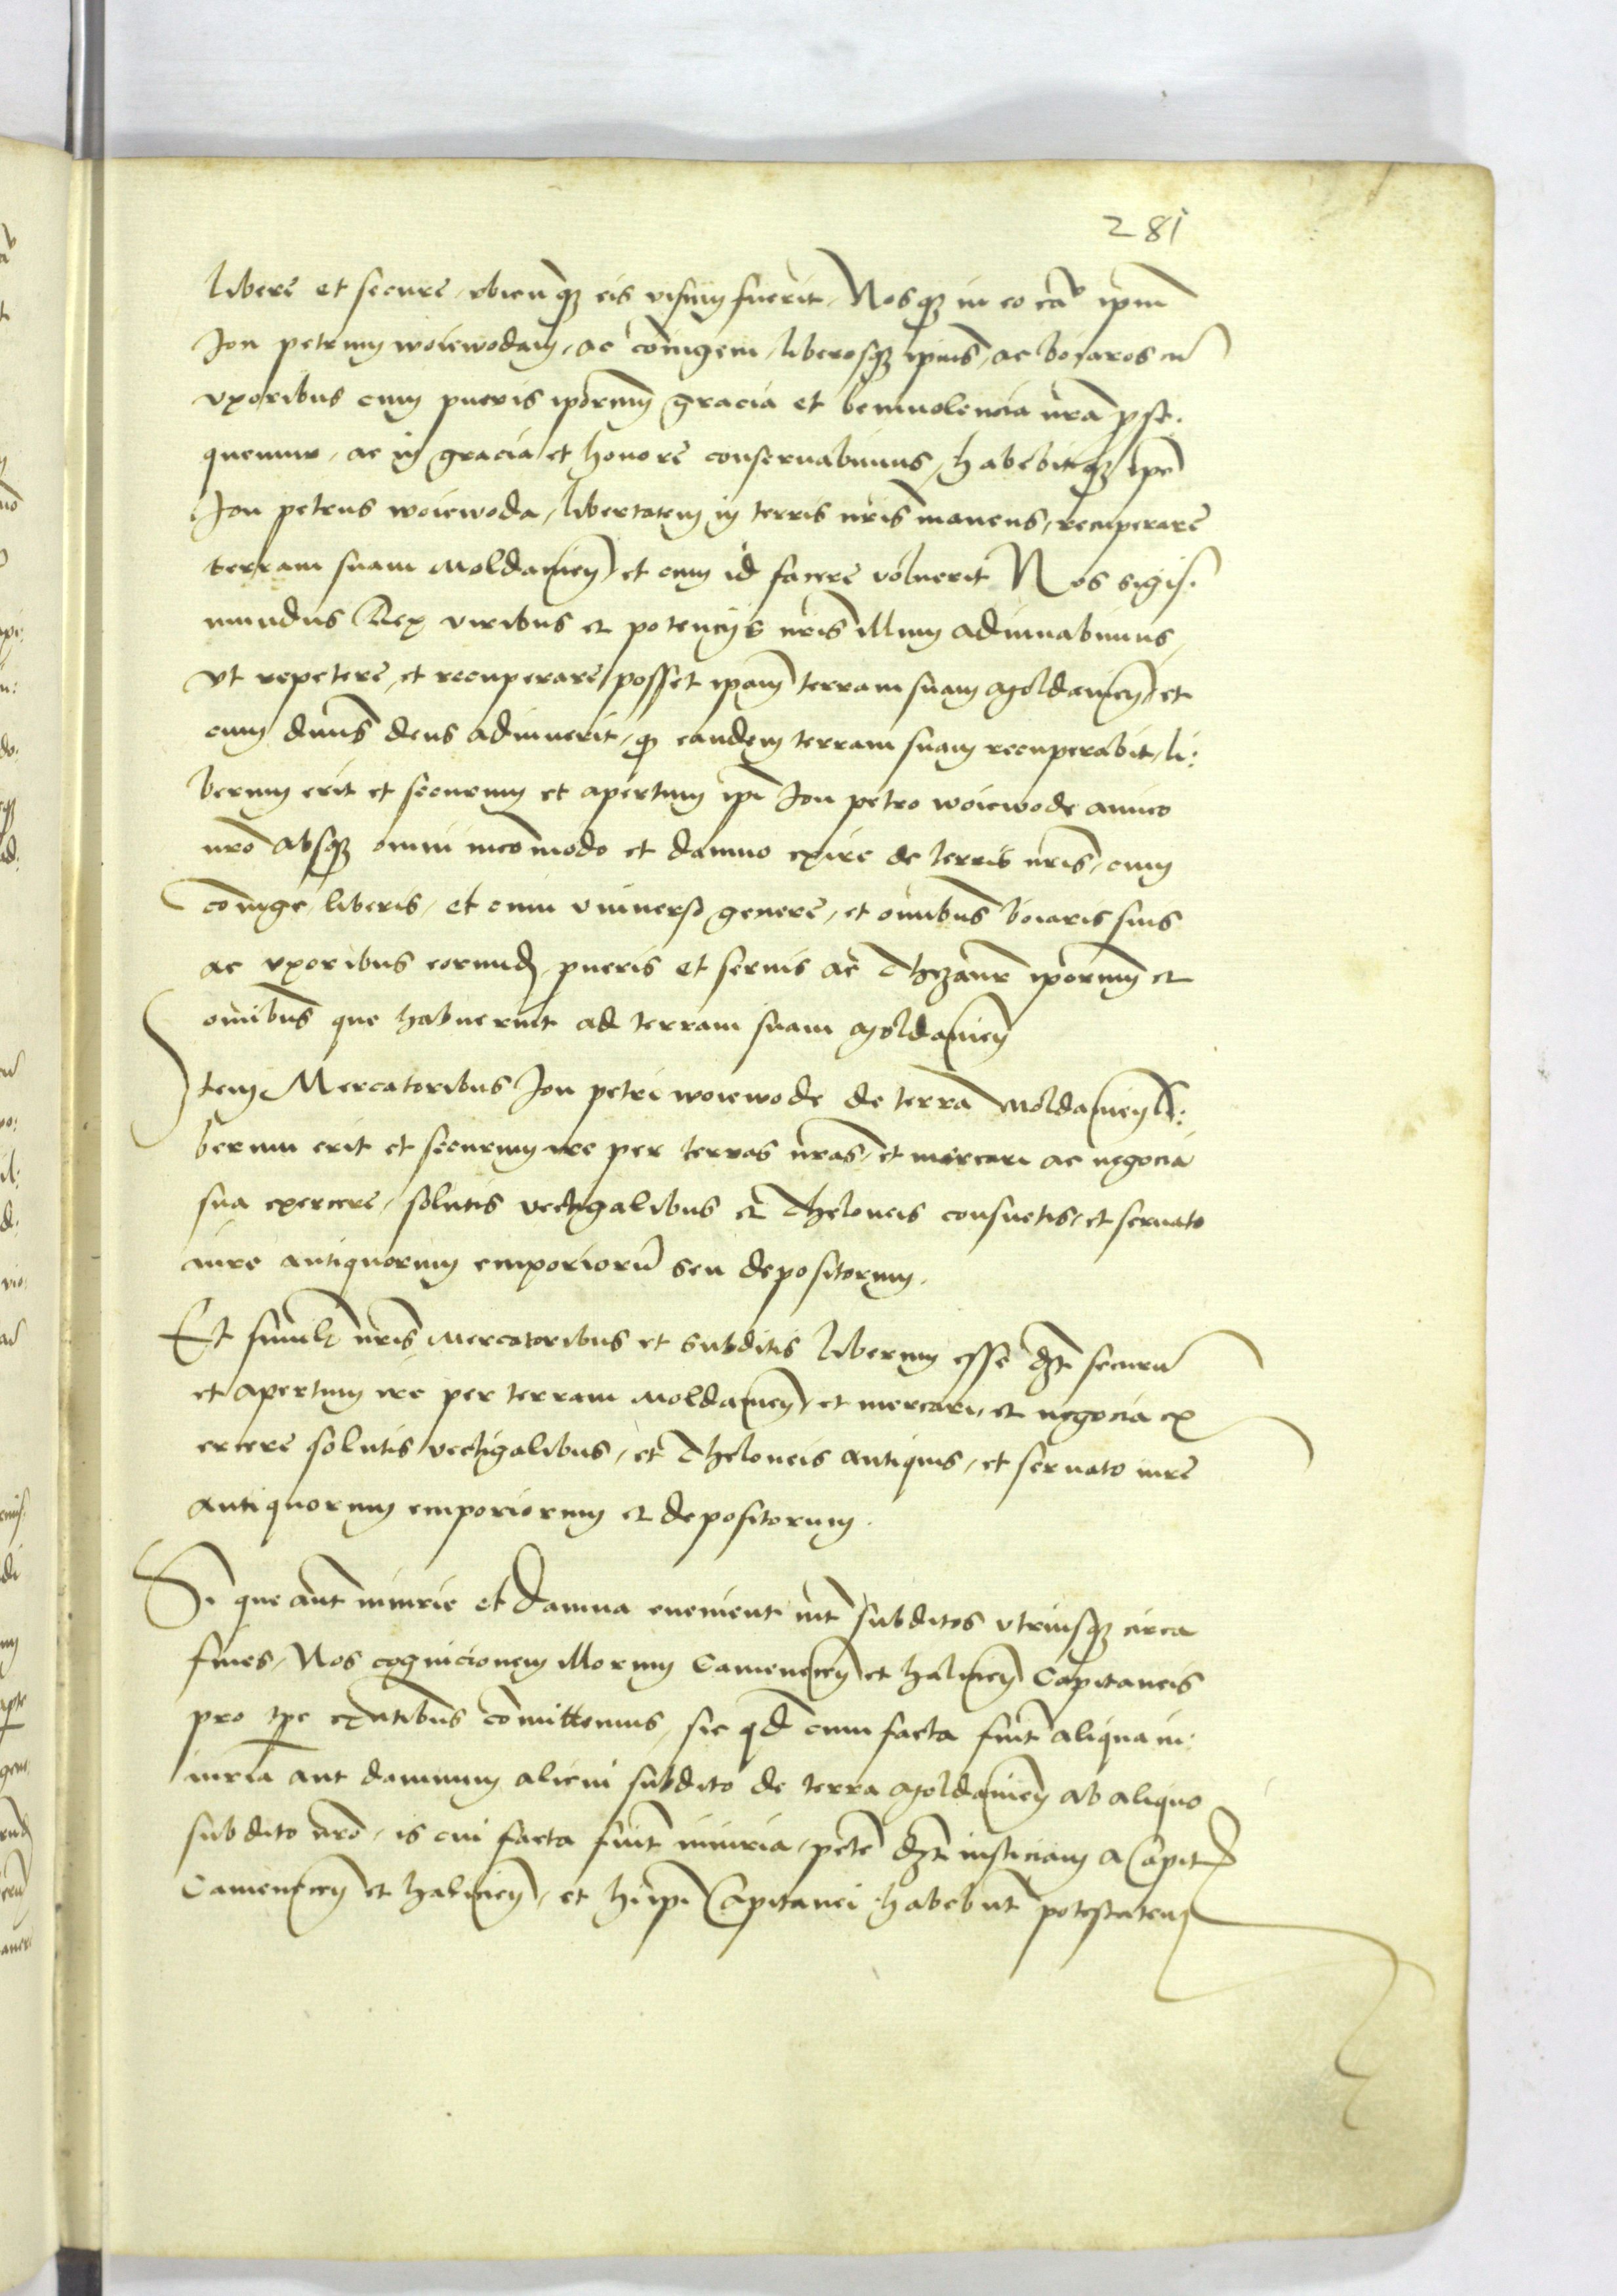 281
libere et secure, vbicunq₃ eis visum fuerit, Nosq₃ in eo casu ipm̄
Ion petrum woiewodam, ac cōiugem, liberosq₃ ipius̄, ac boiaros cū
vxoribus cum pueris ipōrum gracia et beniuolencia nr̄a pse-
quemur, ac in gracia et honore conseruabimus, habebitq₃ ipē
Ion petrus woiewoda, libertatem in terris nr̄is manens, recuperare
terram suam Moldauien̄ et cum id facere voluerit Nos Sigis-
mundus Rex viribus et potencijs nr̄is illum adiuuabimus,
vt repetere, et recuperare posset ipam̄ terram suam Moldauien̄ et
cum dnus̄ deus adiuuerit, q̄ eandem terram suam recuperabit, li:
berum erit et securum et apertum ipī Ion petro woiewode amico
nrō absq₃ omni incōmodo et damno exire de terris nr̄is, cum
cōiuge, liberis, et cum vniuerso genere, et omībus boiaris suis
ac vxoribus eorumd̄, pueris et seruis ac Thezaur̄ ipōrum et
omībus que habuerint ad terram suam Moldauien̄
Item Mercatoribus Ion petri woiewode de terra Moldauien̄ li:
berum erit et securum ire per terras nr̄as, et mercari ac negocia
sua exercere, solutis vectigalibus et Theloneis consuetis, et seruato
iure antiquorum emporiorū seu depositorum.
Et simil̄r nr̄is Mercatoribus et subditis liberum esse d₃t securū
et apertum ire per terram Moldauien̄, et mercari, et negocia ex
ercere solutis vectigalibus, et Theloneis antiquis, et seruato iure
antiquorum emporiorum et depositorum.
Si que aut̄ iniurie et damna euenient int̄ subditos vtriusq₃ circa
fines, Nos cognicionem illorum Camenecen̄ et halicien̄ Capitaneis
pro tp̄e exn̄tibus cōmittemus, sic qd̄ cum facta fuit̄ aliqua in:
iuria aut damnum alicui subdito de terra Moldauien̄ ab aliquo
subdito nrō, is cui facta fuit̄ iniuria, petē d₃t iusticiam a Capit̄
Camenecen̄ et halicien̄, et hi ipī Capitanei habebūt potestatem